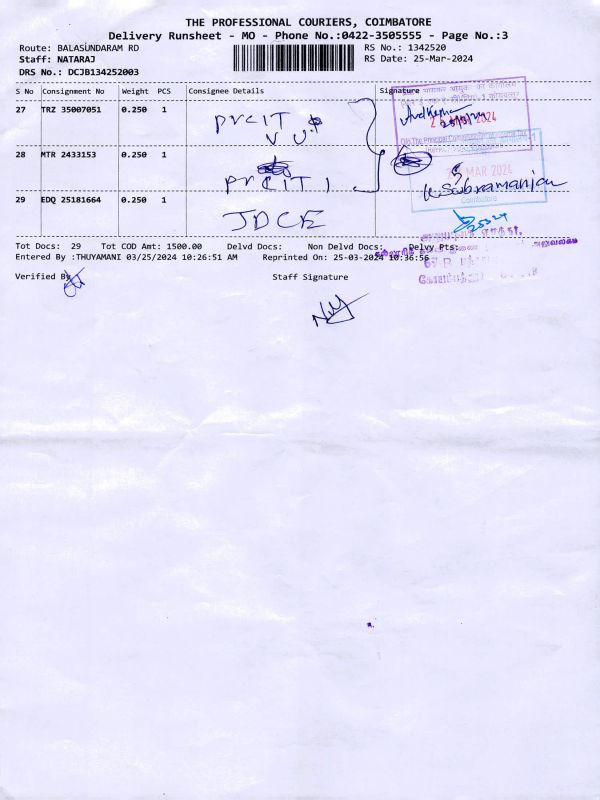 THE PROFESSIONAL COURIERS, COIMBATORE
Delivery Runsheet - MO - Phone No.:0422-3505555 - Page No.:3
Route: BALASUNDARAM RD RS No.: 1342520
Staff: NATARAJ RS Date: 25-Mar-2024
DRS No.: DCJB134252003
S No Consignment No Weight PCS Consignee Details Signature
27 TRZ 35007051 0.250 1 PrCIT
28 MTR 2433153 0.250 1
PrCIT 1
K. Subramanian
29 EDQ 25181664 0.250 1 JDCE
MAR 2024
Coimbatore
Tot Docs: 29 Tot COD Amt: 1500.00 Delvd Docs: Non Delvd Docs: Delvy Pts:
Entered By :THUYAMANI 03/25/2024 10:26:51 AM Reprinted On: 25-03-2024 10:36:56
Verified By Staff Signature